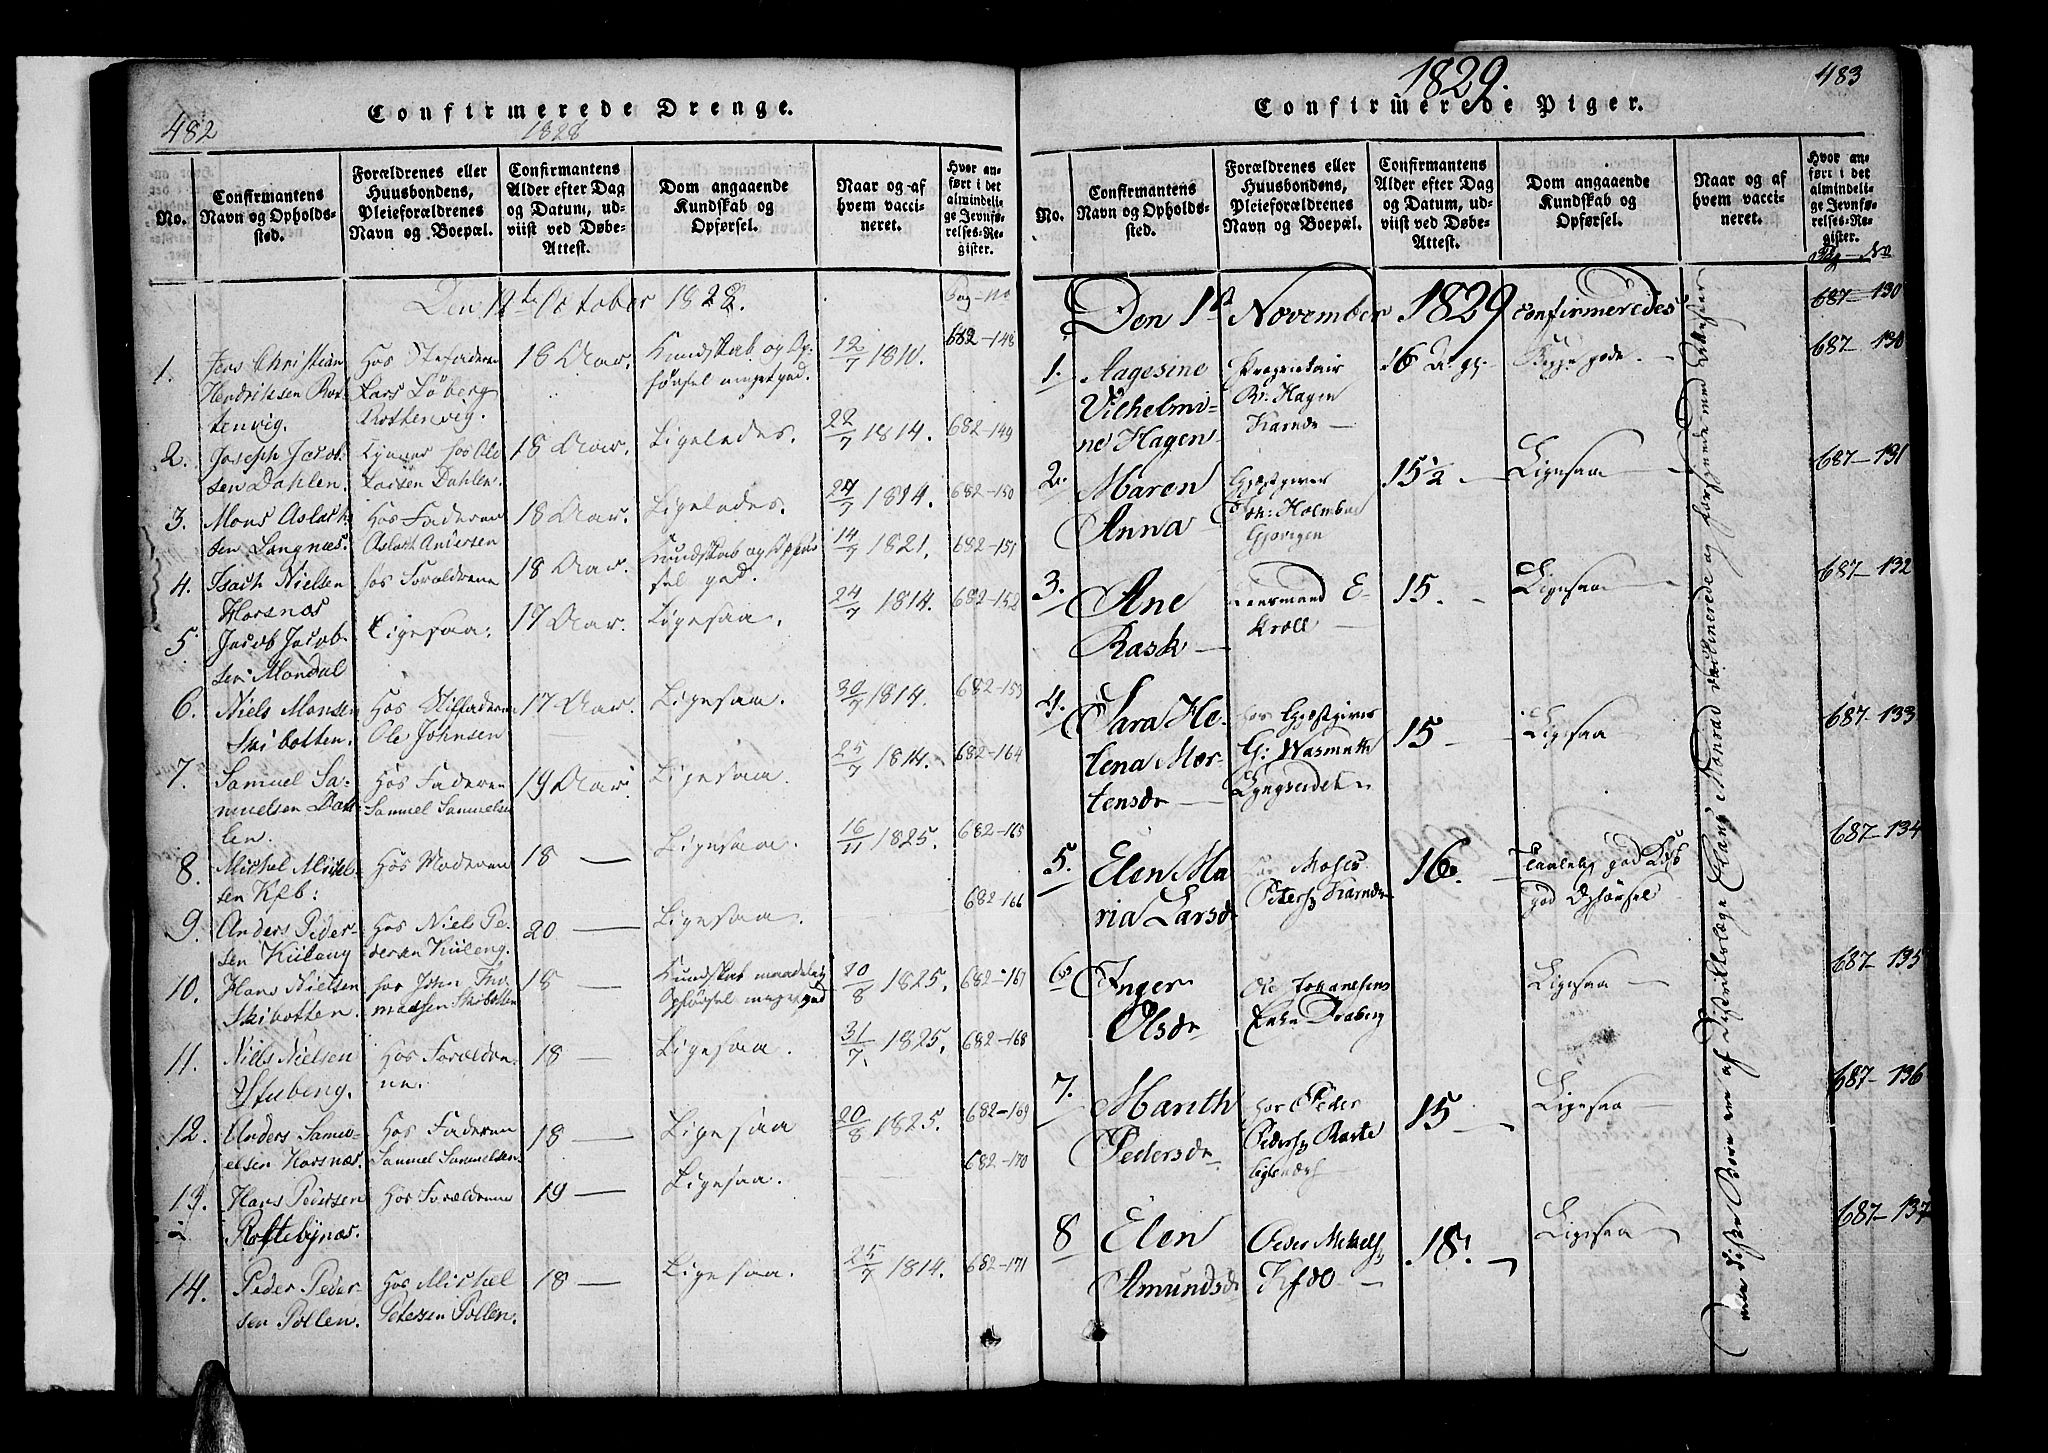 482
Confirmerede Drenge.
1828
No.
Confirmantens
Navn og Opholds-
sted.
Forældrenes eller
Huusbondens,
Pleieforældrenes
Navn og Boepæl.
Confirmantens
Alder efter Dag
og Datum, ud-
viist ved Døbe-
Attest.
Dom angaaende
Kundskab og
Opførsel.
Naar og af
hvem vacci-
neret.
Hvor an-
ført i det
almindeli-
ge Jevnfø-
relses-Re-
gister.
Den 12te October 1828.
Pag - No
1.
Jens Christian
Hendrichsen Rot-
tenvig.
Hos Stefaderen
Lars Løberg
Rottenvig.
18 Aar.
Kundskab og Op-
førsel meget god.
12/7 1810.
682-148
2.
Joseph Jacob-
sen Dahlen.
hos Ole
Larsen Dahlen.
18 Aar.
Ligeledes.
22/7 1814.
682-149
3.
Mons Aslach-
sen Langnæs.
Hos Faderen
Aslach Andersen
18 Aar.
Ligeledes.
24/7 1814.
682-150
4.
Isach Nielsen
Horsnæs
hos Forældrene
18 Aar.
Kundskab og Opfør-
sel god.
14/7 1821.
682-151
5.
Jacob Jacob-
sen Mandal
Ligesaa.
17 Aar.
Ligesaa.
24/7 1814.
682-152
6.
Niels Monsen
Skibotten.
Hos Stiffaderen
Ole Johnsen
17 Aar.
Ligesaa.
30/7 1814.
682-153
7.
Samuel Sa-
muelsen Dah-
len.
Hos Faderen
Samuel Samuelsen
19 Aar.
Ligesaa.
25/7 1814.
682-164
8.
Michel Michel-
sen Kfb:
Hos Moderen
18 —
Ligesaa.
16/11 1825.
682-165
9.
Anders Peder-
sen Kiileng
Hos Niels Pe-
dersen Kiileng.
20 —
Ligesaa.
682-166
10.
Hans Nielsen
Skibotten.
hos John Tho-
masen Skibotten
18 —
Kundskab maadelig
Opførsel meget god
20/8 1825.
682-167
11.
Niels Nielsen
Stuberg.
Hos Forældre-
ne.
18 —
Ligesaa.
31/7. 1825.
682-168
12.
Anders Samu-
elsen Horsnæs.
Hos Faderen
Samuel Samuelsen.
18 —
Ligesaa
20/8 1825.
682-169
13.
Hans Pedersen
Rottebynæs.
Hos Forældrene
19 —
Ligesaa.
682-170
14.
Peder Peder-
sen Pollen.
Hos Michel
Petersen Pollen.
18 —
Ligesaa.
25/7 1814.
682-171
1829.
483
Confirmerede Piger.
No.
Confirmantens
Navn og Opholds-
sted.
Forældrenes eller
Huusbondens,
Pleieforældrenes
Navn og Boepæl.
Confirmantens
Alder efter Dag
og Datum, ud-
viist ved Døbe-
Attest.
Dom angaaende
Kundskab og
Opførsel.
Naar og af
hvem vacci-
neret.
Hvor an-
ført i det
almindeli-
ge Jevnfø-
relses-Re-
gister.
Pag - No
Den 1st November 1829 confirmeredes
687-130
1.
Aagesine
Vilhelmi-
ne Hagen
Proprietair
R. Hagen
Karnæs
16
687-130
2.
Maren
Anna
Gjæstgiver
Joh: Holmboe
15 1/2
Ligesaa
687-131
3.
Ane
Rask
Lensmand E
Kroll
15.
Ligesaa
687-132
4.
Sara He-
lena Mor-
tensdr
hos Gjæstgiver
G: Wasmuth
Lyngseidet
15
Ligesaa
687-133
5.
Elen Ma
ria Larsdr
Moses
Peters Karnæs
16.
Taalelig god Kds
god Opførsel
687-134
6.
Inger
Olsdr
Ole Johannesens
Enke Draberg
Ligesaa
687-135
7.
Marith
Pedersdr
hos Peder
Peders Raste
15
Ligesaa
687-136
8
Elen
Amundsdr
Peder Mikels
18.
Ligesaa
687-137
alle disse Børn ere af Districtslæge Clans Monrad vaccinerede og forsynede med Attester